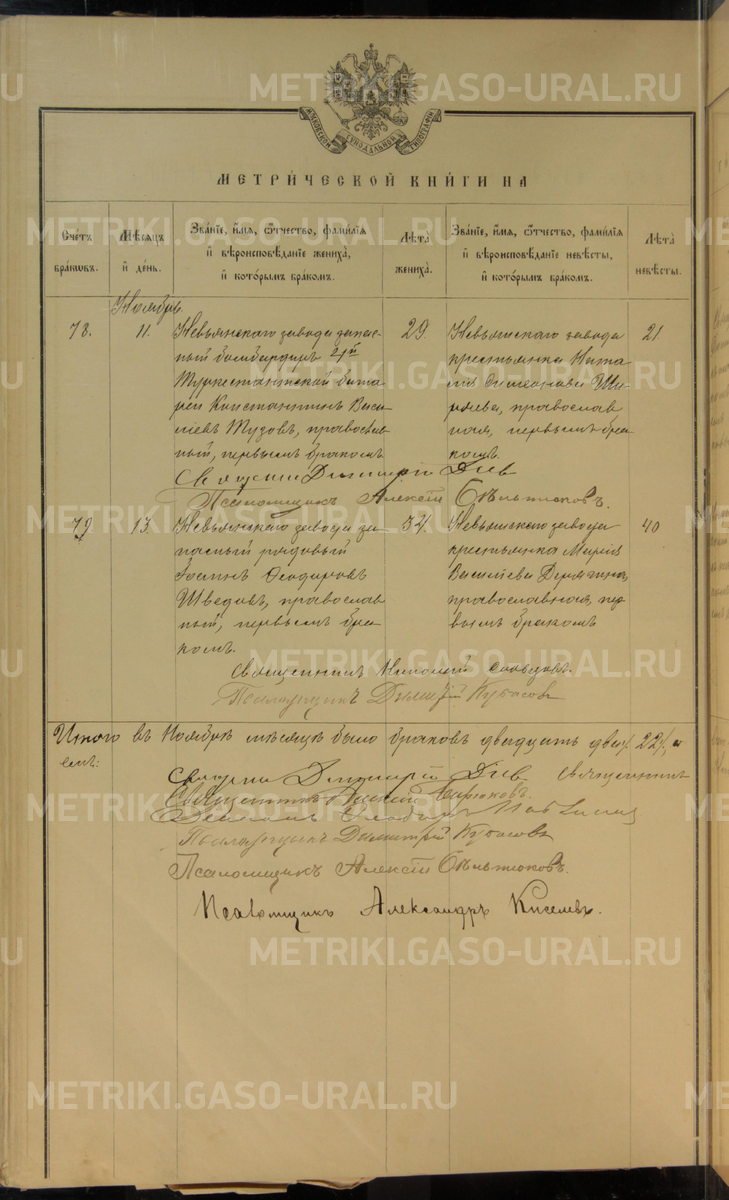 МОСКОВСКОЙ СѴНОДАЛЬНОЙ ТИПОГРАФІИ
МЕТРИ́ЧЕСКОЙ КНИ́ГИ НА
Счетъ браковъ.
Мѣсяцъ и день.
Званіе, имя, отчество, фамилія и вѣроисповѣданіе жениха, и которымъ бракомъ.
Лѣта жениха.
Званіе, имя, отчество, фамилія и вѣроисповѣданіе невѣсты, и которымъ бракомъ.
Лѣта невѣсты.
Ноябрь.
78.
11.
Невьянскаго завода запас-
ный бомбардиръ 2й
Туркестантской бата-
реи Константинъ Васи-
льевъ Тузовъ, православ-
ный, первымъ бракомъ
29.
Невьянскаго завода
крестьянка Ната-
лья Симеонова Ши-
ряева, православ-
ная, первымъ бра-
комъ.
21.
Священникъ Димитрій Діев
Псаломщикъ Алексѣй Бѣльтюковъ.
79
13.
Невьянскаго завода за-
пасный рядовый
Іоаннъ Ѳеодоровъ
Шведовъ, православ-
ный, первымъ бра-
комъ.
34.
Невьянскаго завода
крестьянка Марія
Васильева Дерягина,
православная, пер-
вымъ бракомъ
40
Священникъ Николай
Псаломщикъ Димитрій Кубасовъ
Итого въ Ноябрѣ мѣсяцѣ было браковъ двадцать два /22/, в
емъ:
Священникъ Димитрій Діев Священникъ
Священникъ Бирюковъ.
Псаломщикъ Димитрій Кубасовъ
Псаломщикъ Алексѣй Бѣльтюковъ.
Псаломщикъ Александръ Киселевъ.
METRIKI.GASO-URAL.RU